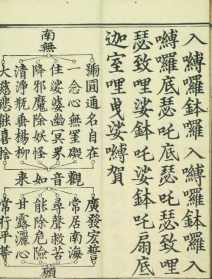 入嚩囉鉢囉入嚩囉鉢囉入
嚩囉底瑟吒底瑟吒瑟致哩
瑟致哩娑鉢吒娑鉢吒扇底
迦室哩曳娑嚩賀
南無
號圓通名自在
一念心無罣礙
住娑婆幽冥界
降邪魔除妖怪
清淨瓶垂楊柳
大慈悲能喜捨
觀音如來
廣發弘誓
常居南海
尋聲救苦
能除危險
甘露灑心
常行平等
願